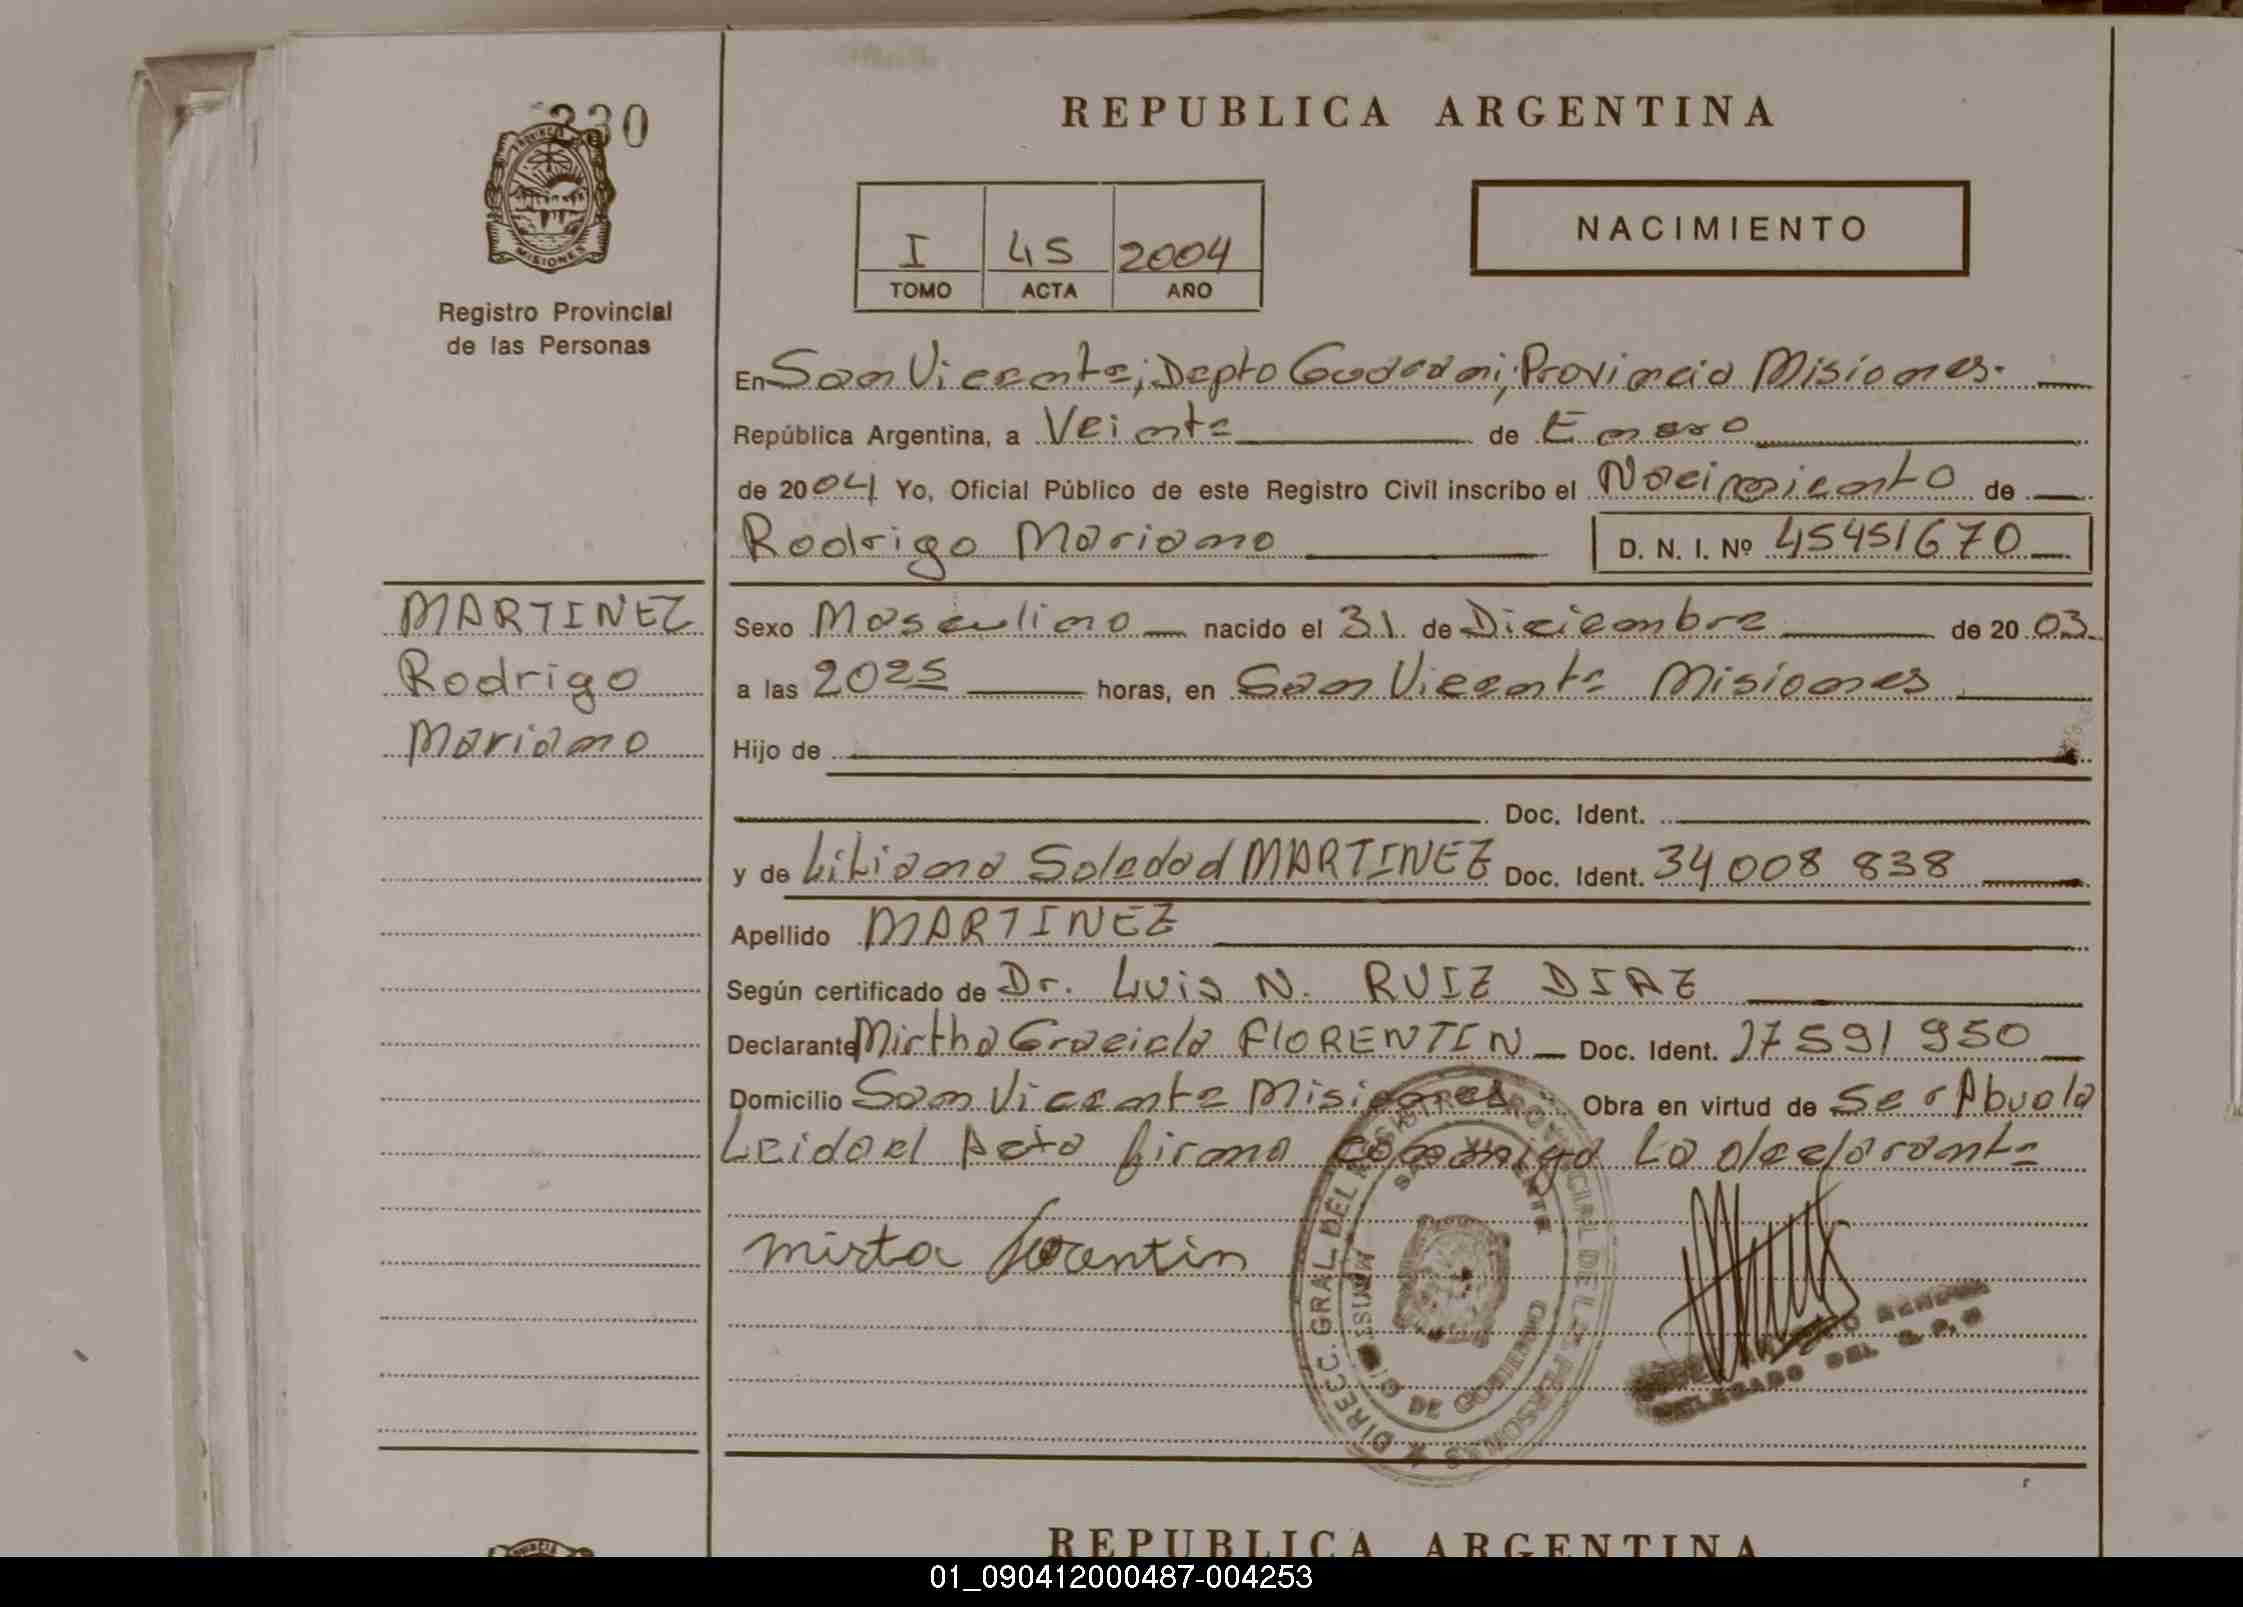 330
PROVINCIA
MISIONES
Registro Provincial
de las Personas
REPUBLICA ARGENTINA
I 45 2004
TOMO ACTA AÑO
NACIMIENTO
En San Vicente; Depto Guaraní; Provincia Misiones.
República Argentina, a Veinte de Enero
de 2004 Yo, Oficial Público de este Registro Civil inscribo el Nacimiento de
Rodrigo Mariano D. N. I. Nº 45451670
MARTINEZ
Rodrigo
Mariano
Sexo Masculino nacido el 31 de Diciembre de 2003
a las 20 25 horas, en San Vicente Misiones
Hijo de
Doc. Ident.
y de Liliana Soledad MARTINEZ Doc. Ident. 34 008 838
Apellido MARTINEZ
Según certificado de Dr. Luis N. RUIZ DIAZ
Declarante Mirtha Graciela FLORENTIN Doc. Ident. 17591950
Domicilio San Vicente Misiones Obra en virtud de Ser Abuela
Leida el Acta firma conmigo La declarante
mirta florentin
DIRECC. GRAL. DEL REGISTRO PROVINCIAL DE LAS PERSONAS
SAN VICENTE
MINISTERIO DE GOBIERNO
DELEGADO DEL R. P. P.
REPUBLICA ARGENTINA
01_090412000487-004253